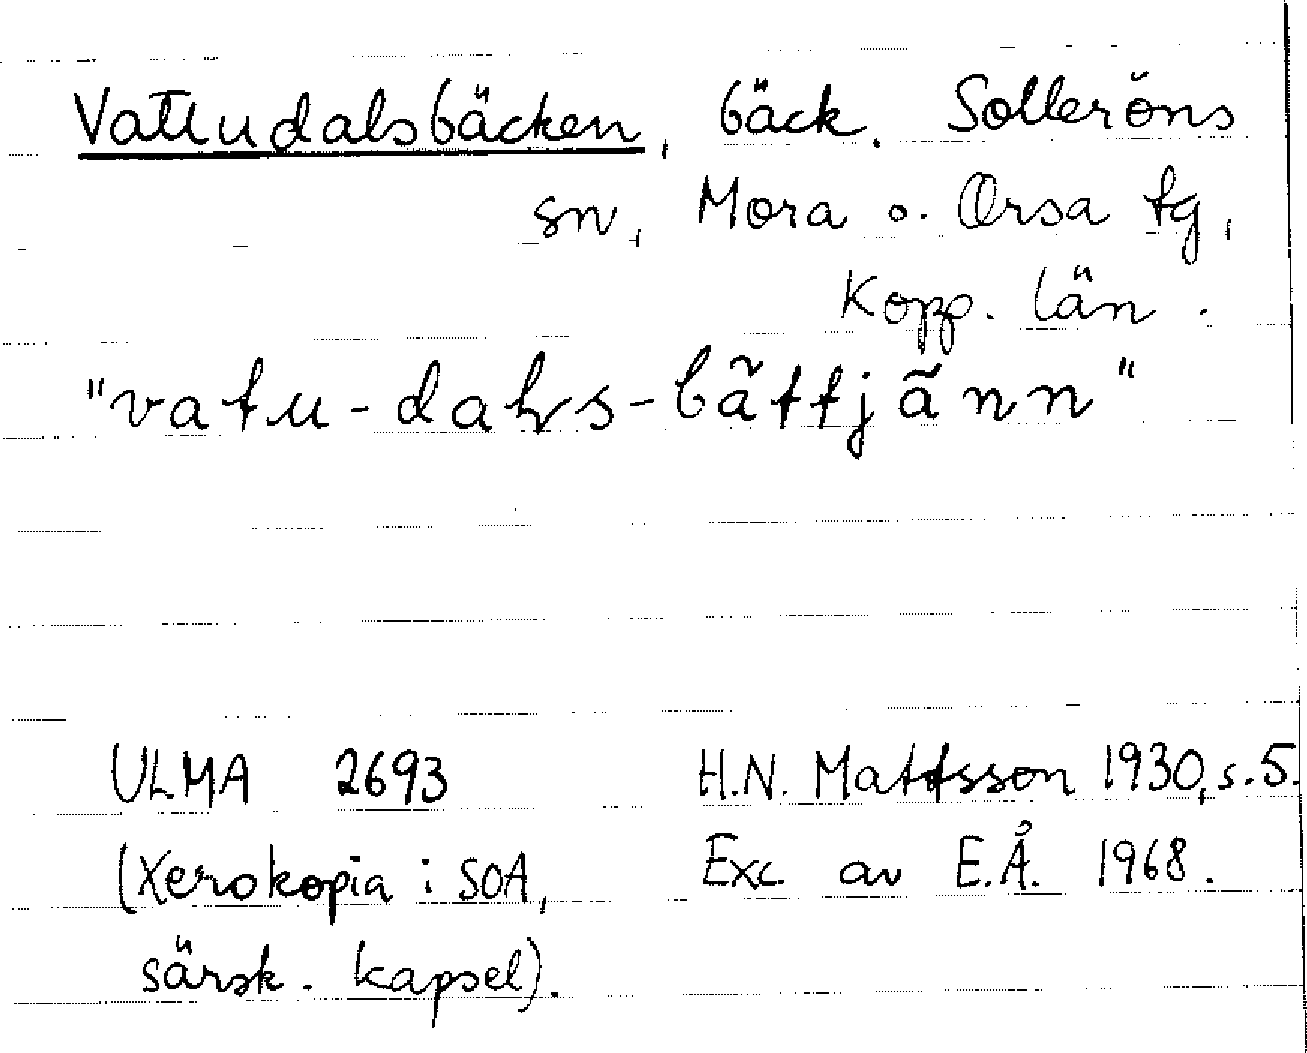 Vattudalsbäcken, bäck. Solleröns
sn, Mora o. Orsa tg,
Kopp. län.
"vatu-dahs-bãttjãnn"
ULMA 2693 H.N. Mattsson 1930, s. 5.
(Xerokopia i SOA, Exc. av E.Å. 1968.
särsk. kapsel).